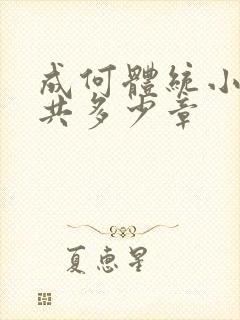 成何體統小
共多少章
夏惠星